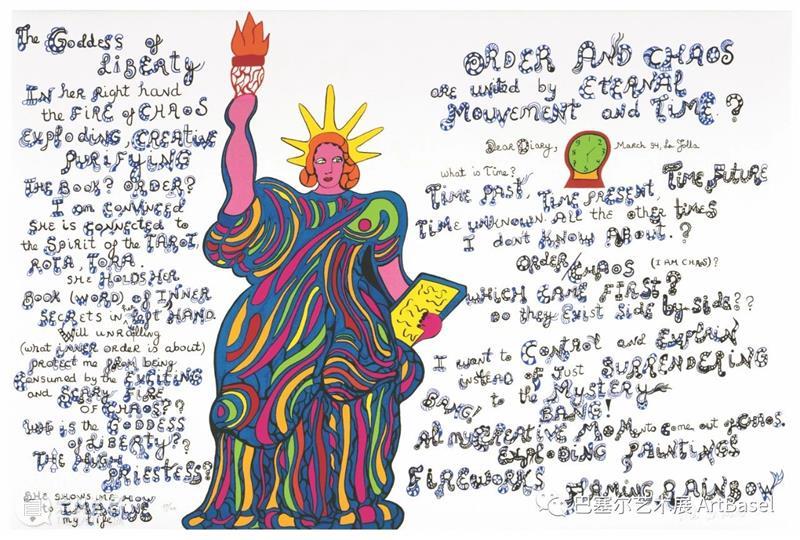 The Goddess of
LIBERTY
IN her RIGHT hand
the FIRE of CHAOS
EXPLODING, CREATIVE
PURIFYING
THE BOOK? ORDER?
I am CONVINCED
SHE is CONNECTED to
the SPIRIT of the TAROT,
ROTA, TORA.
SHE HOLDS HER
BOOK (WORD) OF INNER
SECRETS in LEFT HAND.
Will UNRAVELLING
(what INNER order is about)
PROTECT me from being
CONSUMED by the EXCITING
and SCARY FIRE
OF CHAOS??
WHO is the GODDESS
of LIBERTY?
THE HIGH
PRIESTESS?
SHE SHOWS ME HOW
to IMPROVISE
my life
ORDER AND CHAOS
are united by ETERNAL
MOUVEMENT and TIME?
Dear Diary, March 34, La Jolla
What is Time?
TIME PAST, TIME PRESENT, TIME FUTURE
TIME UNKNOWN. All the other times
I dont KNOW ABOUT.?
ORDER/CHAOS (I AM CHAOS)?
WHICH CAME FIRST?
DO they EXIST side by side??
I want to CONTROL and EXPLAIN
INSTEAD OF Just SURRENDERING
to the MYSTERY
BANG! BANG!
All my CREATIVE MOMENTS come out of CHAOS.
EXPLODING PAINTINGS
FIREWORKS FLAMING RAINBOW
巴塞尔艺术展 ArtBasel